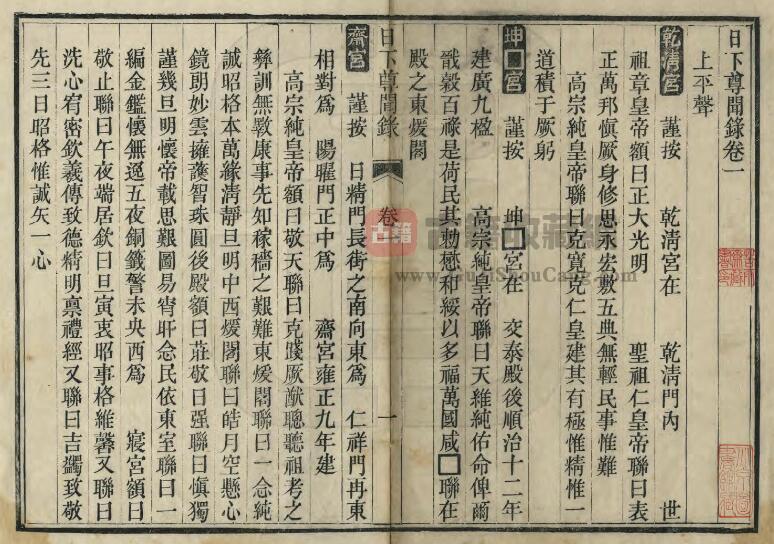 日下尊聞錄卷一
上平聲
乾淸宮 謹按 乾淸宮在 乾淸門內 世
祖章皇帝額曰正大光明 聖祖仁皇帝聯曰表
正萬邦愼厥身修思永宏敷五典無輕民事惟難
高宗純皇帝聯曰克寬克仁皇建其有極惟精惟一
道積于厥躬
坤□宮 謹按 坤□宮在 交泰殿後順治十二年
建廣九楹 高宗純皇帝聯曰天維純佑命俾爾
戩穀百祿是荷民其勅懋和綏以多福萬國咸□聯在
殿之東煖閣
日下尊聞錄 卷 一
齋宮 謹按 日精門長街之南向東爲 仁祥門再東
相對爲 陽曜門正中爲 齋宮雍正九年建
高宗純皇帝額曰敬天聯曰克踐厥猷聰聽祖考之
彝訓無斁康事先知稼穡之艱難東煖閣聯曰一念純
誠昭格本萬緣淸靜旦明中西煖閣聯曰皓月空懸心
鏡朗妙雲擁護智珠圓後殿額曰莊敬日强聯曰愼獨
謹幾旦明懷帝載思艱圖易宵旰念民依東室聯曰一
編金鑑懷無逸五夜銅籤警未央西爲 寢宮額曰
敬止聯曰午夜端居欽曰旦寅衷昭事格維馨又聯曰
洗心宥密欽羲傳致德精明禀禮經又聯曰吉蠲致敬
先三日昭格惟誠矢一心
古籍
www.gujiShouCang.com